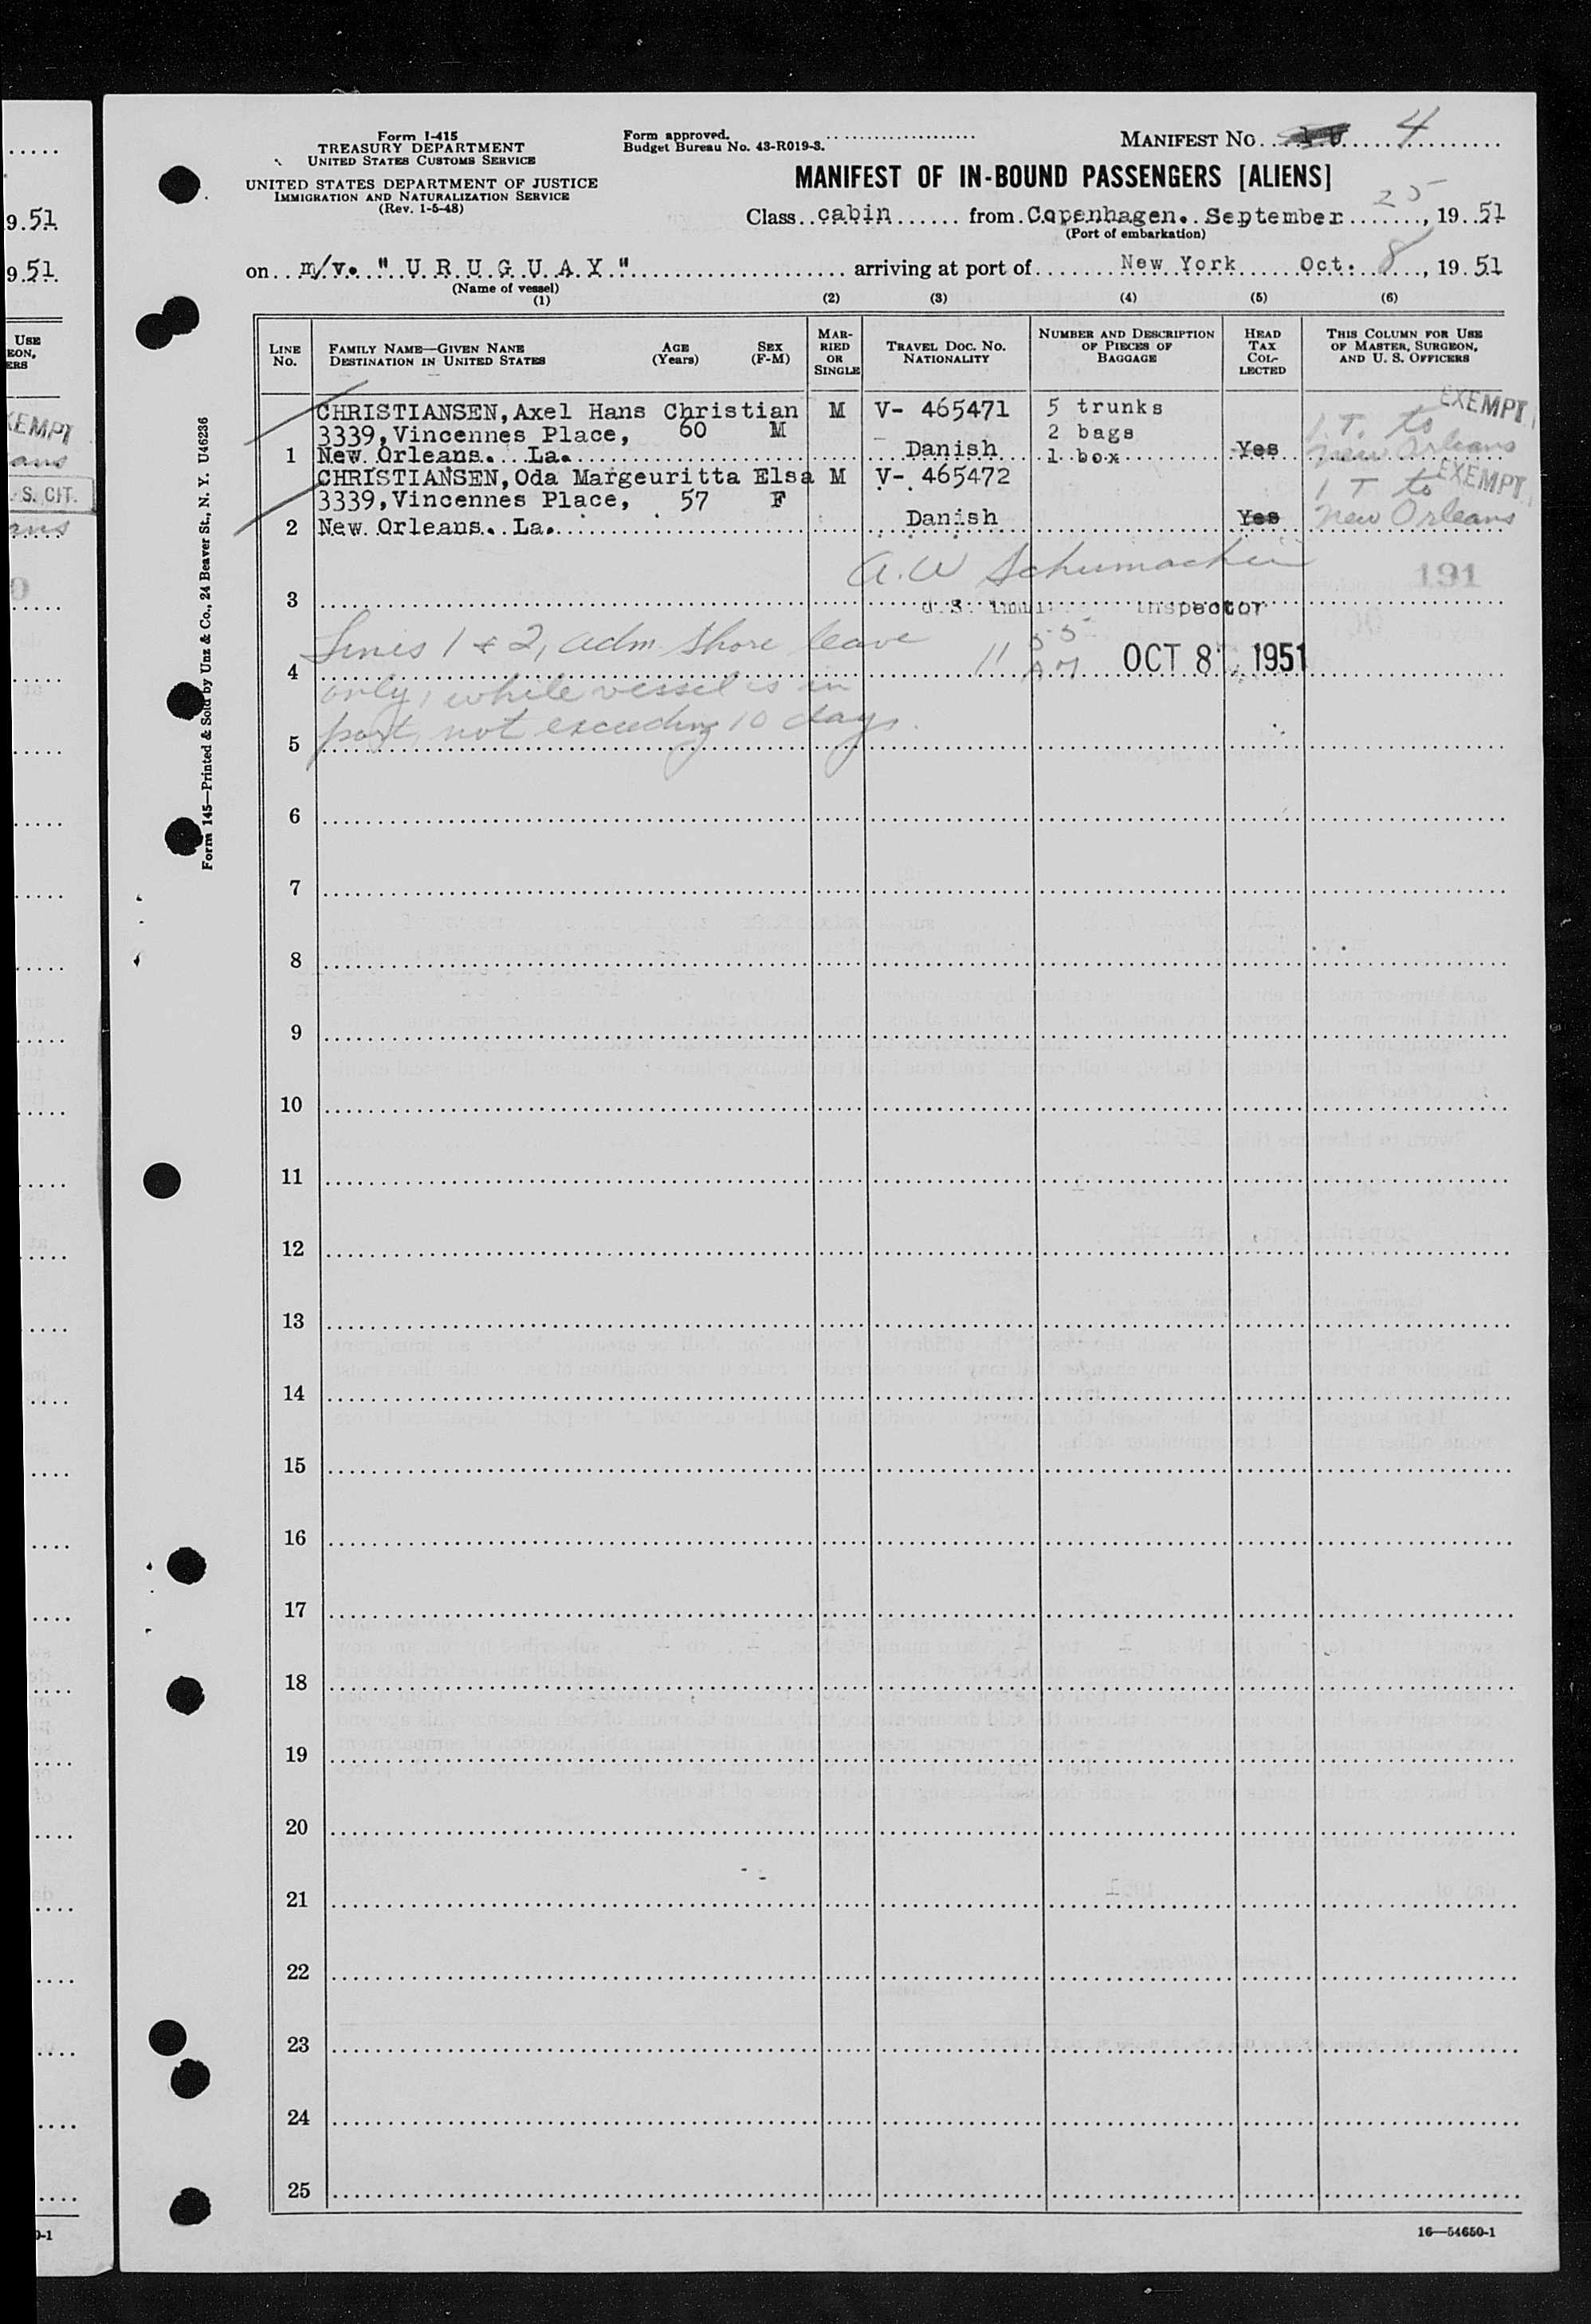 Form I-415
TREASURY DEPARTMENT
UNITED STATES CUSTOMS SERVICE
UNITED STATES DEPARTMENT OF JUSTICE
IMMIGRATION AND NATURALIZATION SERVICE
(Rev. 1-5-48)
Form approved.
Budget Bureau No. 43-R019-3.
MANIFEST NO. 4
MANIFEST OF IN-BOUND PASSENGERS [ALIENS]
Class cabin from Copenhagen. September 25, 1951
(Port of embarkation)
on m/v. " U R U G U A Y " arriving at port of New York Oct. 8, 1951
(Name of vessel)
(1) (2) (3) (4) (5) (6)
LINE NO.
FAMILY NAME—GIVEN NAME
DESTINATION IN UNITED STATES
AGE (Years)
SEX (F-M)
MARRIED OR SINGLE
TRAVEL DOC. NO.
NATIONALITY
NUMBER AND DESCRIPTION OF PIECES OF BAGGAGE
HEAD TAX COLLECTED
THIS COLUMN FOR USE OF MASTER, SURGEON, AND U. S. OFFICERS
CHRISTIANSEN, Axel Hans Christian M V- 465471 5 trunks EXEMPT
3339, Vincennes Place, 60 M 2 bags 1 T. to
1 New Orleans. La. Danish 1 box Yes New Orleans
CHRISTIANSEN, Oda Margeuritta Elsa M V- 465472 EXEMPT
3339, Vincennes Place, 57 F 1 T to
2 New Orleans. La. Danish Yes New Orleans
A. W Schumacher
191
3 U.S. Inspector
Lines 1 & 2, adm. shore leave
4 11 55 AM OCT 8 1951
only, while vessel is in
port, not exceeding 10 days.
5
6
7
8
9
10
11
12
13
14
15
16
17
18
19
20
21
22
23
24
25
16—54650-1
Form 145—Printed & Sold by Unz & Co., 24 Beaver St., N. Y. U46236
9.51
9.51
USE
EON,
ERS
EMPT
ans
S. CIT.
ans
0-1